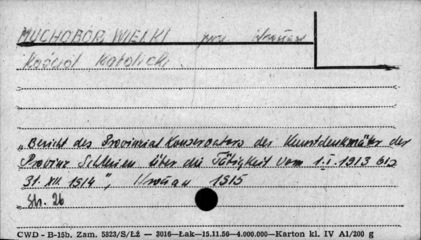 MUCHOBÓR WIELKI pow. Wrocław
Kościół katolicki.
„Bericht des Provinzial Konservators der Kunstdenkmäler der
Provinz Schlesien über die Tätigkeit vom 1.I.1913 bis
31.XII.1914", Wrocław 1915
Str. 26
CWD - B-15b. Zam. 5823/S/ŁŻ — 3016—Łak—15.11.56—4.000.000—Karton kl. IV A1/200 g